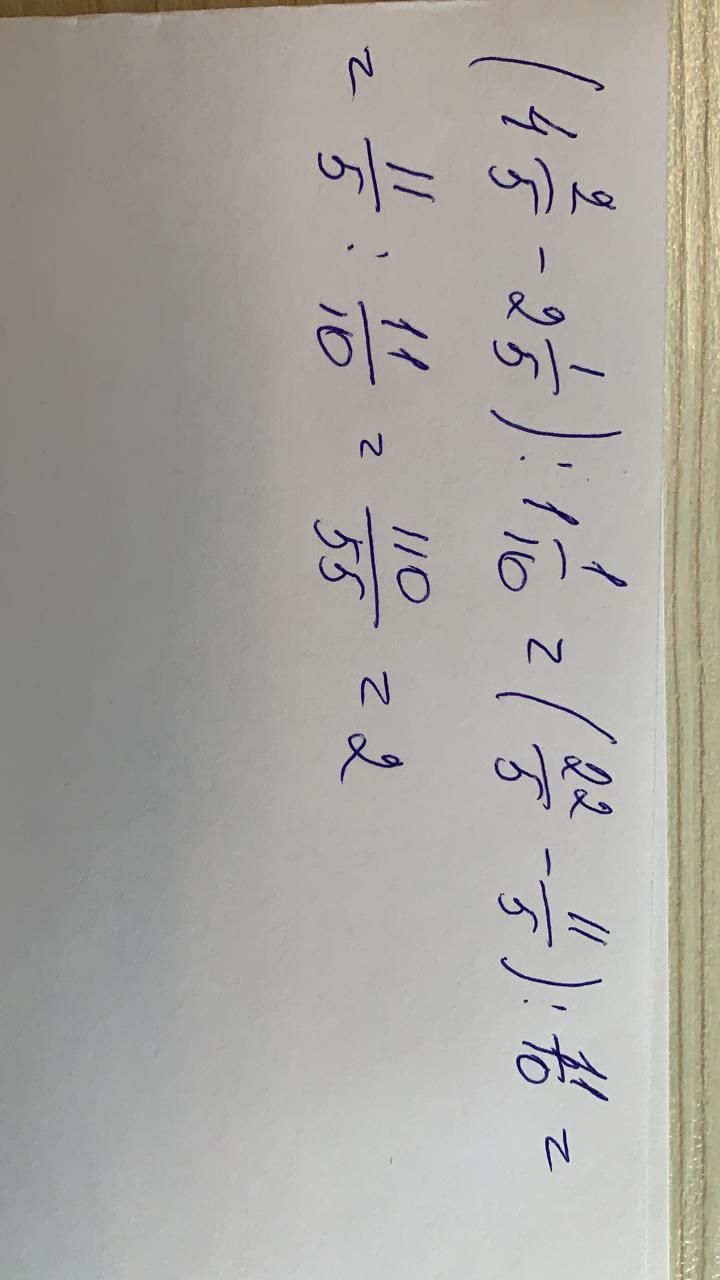 (4 2/5 - 2 1/5) : 1 1/10 = (22/5 - 11/5) : 11/10 =
= 11/5 : 11/10 = 110/55 = 2